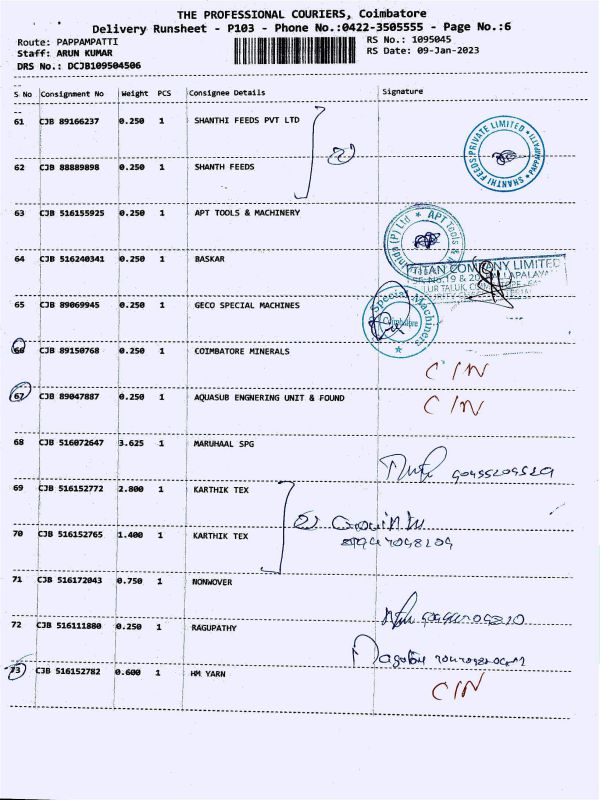 THE PROFESSIONAL COURIERS, Coimbatore
Delivery Runsheet - P103 - Phone No.:0422-3505555 - Page No.:6
Route: PAPPAMPATTI
RS No.: 1095045
Staff: ARUN KUMAR
RS Date: 09-Jan-2023
DRS No.: DCJB109504506
S No Consignment No Weight PCS Consignee Details Signature
61 CJB 89166237 0.250 1 SHANTHI FEEDS PVT LTD
SHANTHI FEEDS PRIVATE LIMITED
62 CJB 88889898 0.250 1 SHANTH FEEDS
63 CJB 516155925 0.250 1 APT TOOLS & MACHINERY
64 CJB 516240341 0.250 1 BASKAR
TITAN COMPANY LIMITED
65 CJB 89069945 0.250 1 GECO SPECIAL MACHINES
Coimbatore
66 CJB 89150768 0.250 1 COIMBATORE MINERALS
CIN
67 CJB 89047887 0.250 1 AQUASUB ENGNERING UNIT & FOUND
CIN
68 CJB 516072647 3.625 1 MARUHAAL SPG
69 CJB 516152772 2.800 1 KARTHIK TEX
70 CJB 516152765 1.400 1 KARTHIK TEX
71 CJB 516172043 0.750 1 NONWOVER
72 CJB 516111880 0.250 1 RAGUPATHY
73 CJB 516152782 0.600 1 HM YARN
CIN